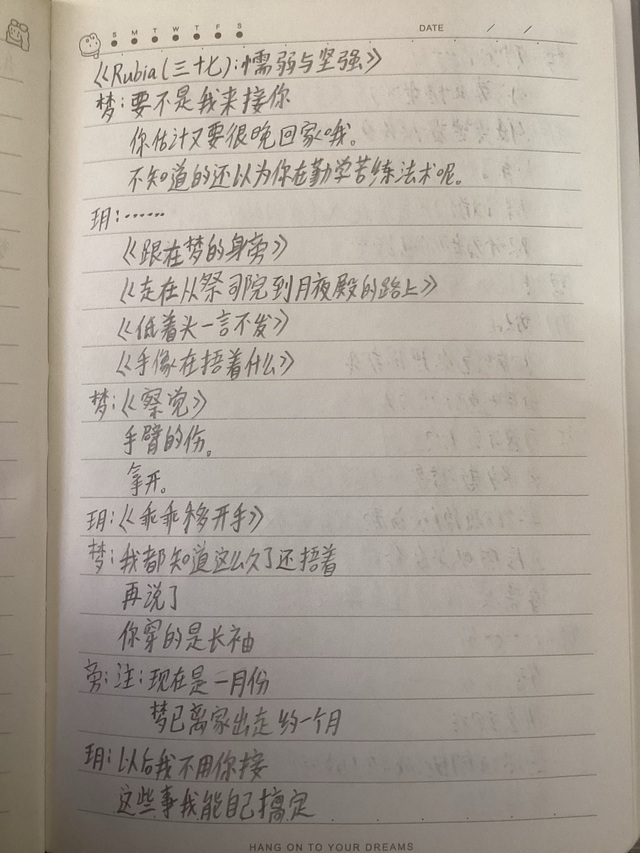 S M T W T F S
DATE / /
《Rubia(三十七):懦弱与坚强》
梦:要不是我来接你
你估计又要很晚回家哦。
不知道的还以为你在勤学苦练法术呢。
玥:……
《跟在梦的身旁》
《走在从祭司院到月夜殿的路上》
《低着头一言不发》
《手像在捂着什么》
梦:《察觉》
手臂的伤。
拿开。
玥:《乖乖移开手》
梦:我都知道这么久了还捂着
再说了
你穿的是长袖
旁:注:现在是二月份
梦已离家出走约一个月
玥:以后我不用你接
这些事我能自己搞定
HANG ON TO YOUR DREAMS